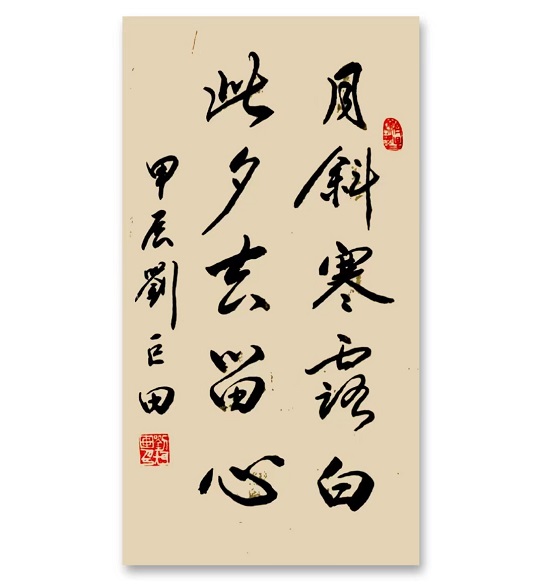 月斜寒露白
此夕去留心
甲辰劉巨田